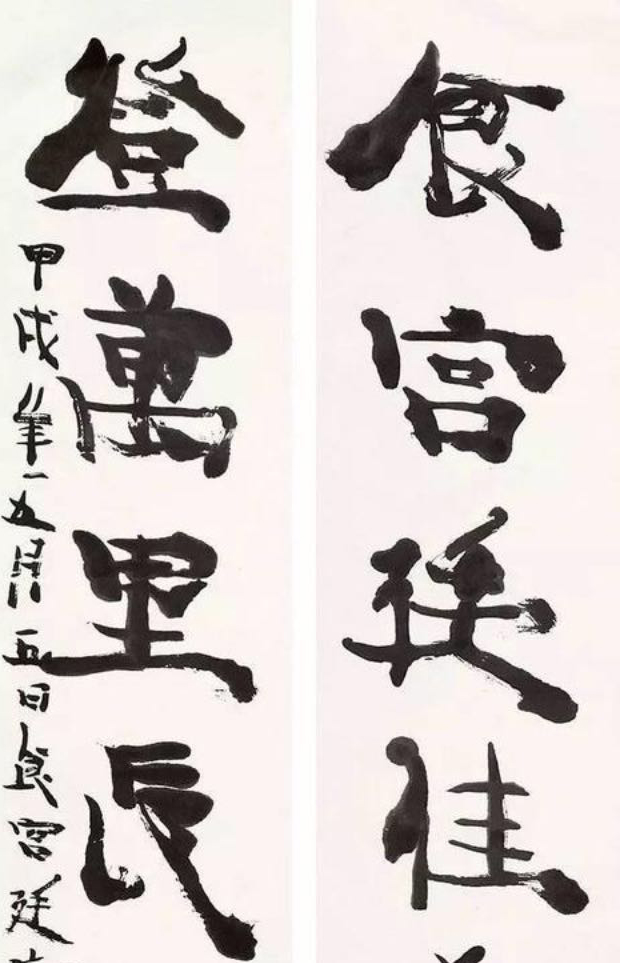 食宫廷佳
登萬里長
甲戌年五月五日食宫廷